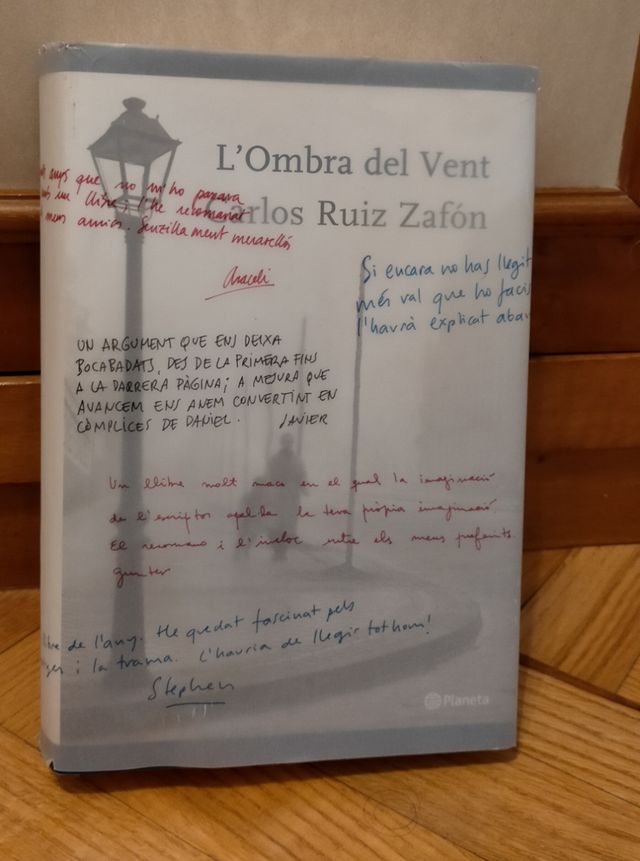 L'Ombra del Vent
Carlos Ruiz Zafón
anys que no m'ho passava
un llibre, l'he recomanat
meus amics. Senzillament meravellós
Araceli
Si encara no has llegit
més val que ho facis
l'haurà explicat abans
UN ARGUMENT QUE ENS DEIXA
BOCABADATS, DES DE LA PRIMERA FINS
A LA DARRERA PÀGINA; A MESURA QUE
AVANCEM ENS ANEM CONVERTINT EN
CÒMPLICES DE DANIEL. JAVIER
Un llibre molt maco en el qual la imaginació
de l'escriptor apel·la la teva pròpia imaginació.
El recomano i l'incloc entre els meus preferits.
Gunter
de l'any. He quedat fascinat pels
i la trama. L'hauria de llegir tothom!
Stephen
Planeta